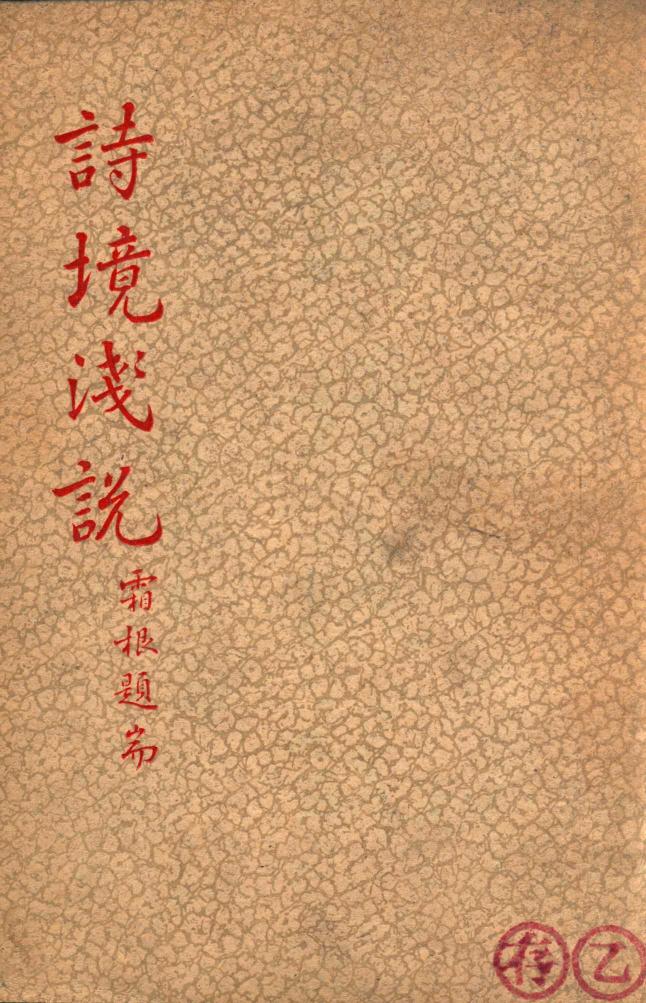 詩境淺説
霜根題耑
存 乙